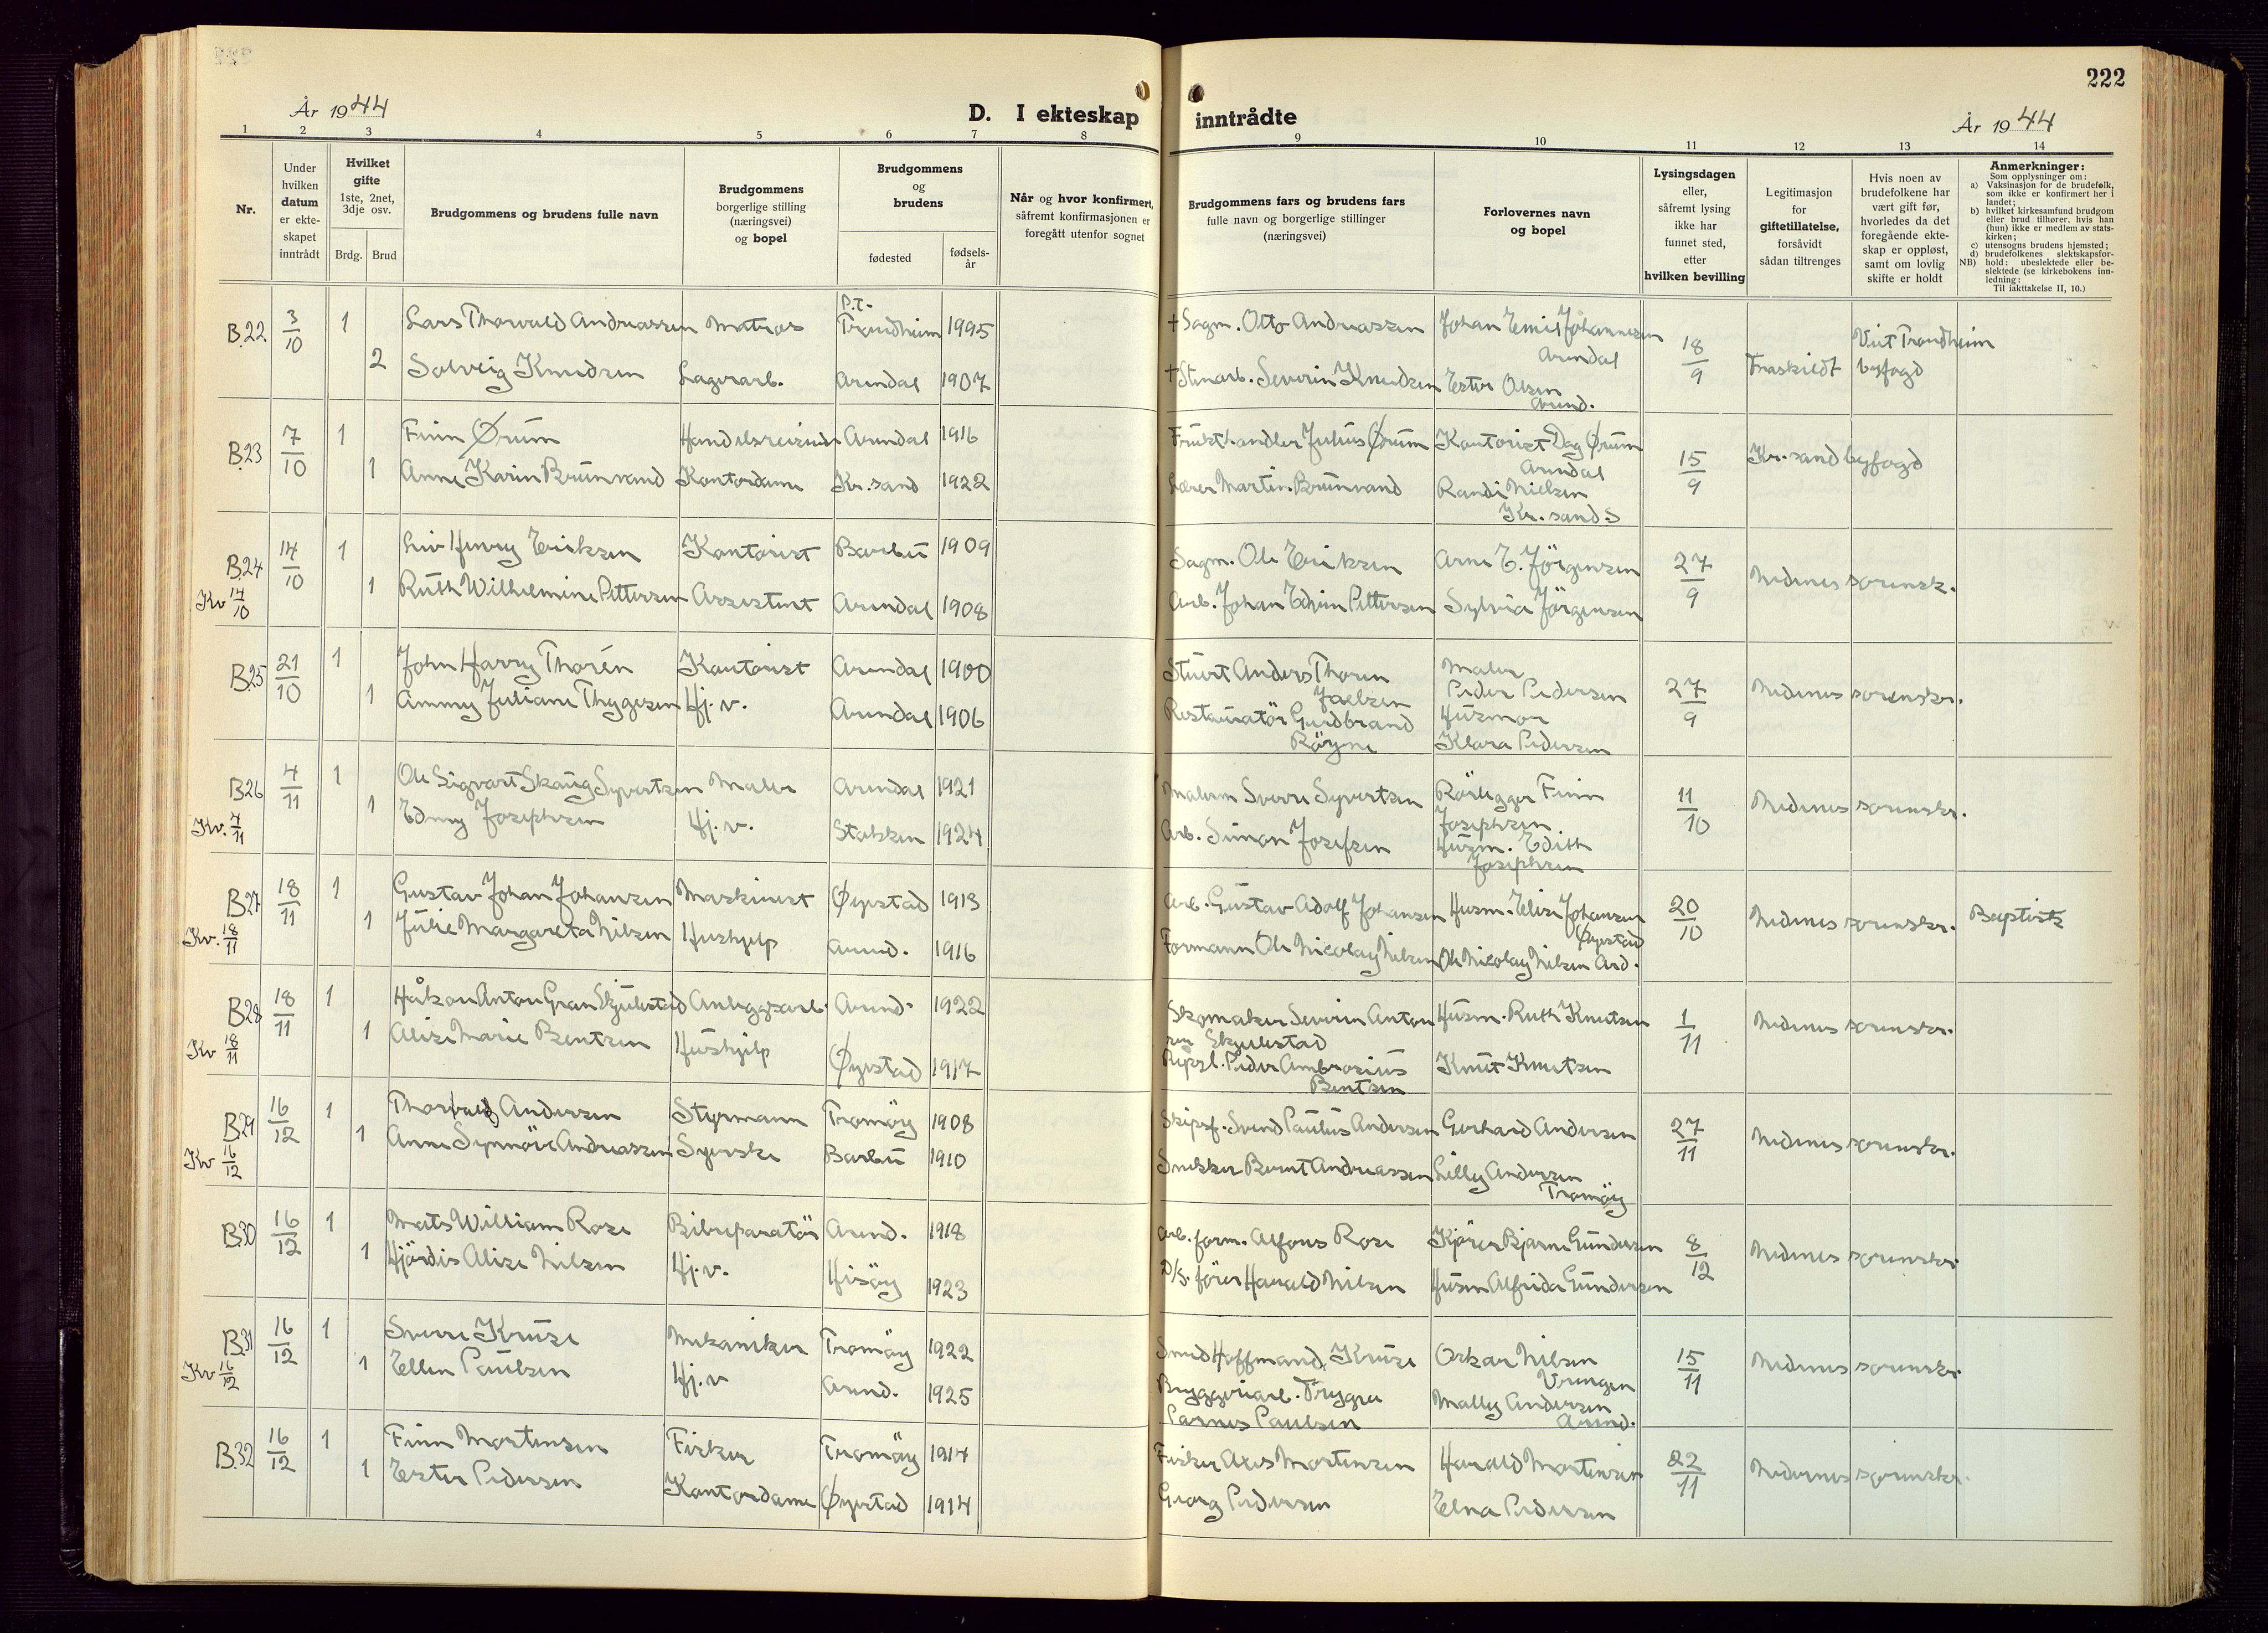 222
År 1944
D. I ekteskap inntrådte
År 1944
1 2 3 4 5 6 7 8 9 10 11 12 13 14
Nr.
Under hvilken datum er ekte-skapet inntrådt
Hvilket gifte 1ste, 2net, 3dje osv.
Brdg. Brud
Brudgommens og brudens fulle navn
Brudgommens borgerlige stilling (næringsvei) og bopel
Brudgommens og brudens
fødested
fødsels-år
Når og hvor konfirmert, såfremt konfirmasjonen er foregått utenfor sognet
Brudgommens fars og brudens fars fulle navn og borgerlige stillinger (næringsvei)
Forlovernes navn og bopel
Lysingsdagen eller, såfremt lysing ikke har funnet sted, etter hvilken bevilling
Legitimasjon for giftetillatelse, forsåvidt sådan tiltrenges
Hvis noen av brudefolkene har vært gift før, hvorledes da det foregående ekte-skap er oppløst, samt om lovlig skifte er holdt
Anmerkninger:
Som opplysninger om:
a) Vaksinasjon for de brudefølk, som ikke er konfirmert her i landet;
b) hvilket kirkesamfund brudgom eller brud tilhører, hvis han (hun) ikke er medlem av stats-kirken;
c) utensogns brudens hjemsted;
d) brudefolkenes slektskapsfor-hold: ubeslektede eller be-slektede (se kirkebokens inn-ledning:
NB)
Til iakttakelse II, 10.)
B.22 3/10 1 Lars Thorvald Andreassen Matros P.T. Trondheim 1995 + Sagm. Otto Andreassen Johan Emil Johannesen Arendal 18/9 Fraskildt Vert Trondheim byfogd
2 Solveig Knudsen Lagerarb. Arendal 1907 + Stenarb. Severin Knudsen Ester Olsen Arend.
B.23 7/10 1 Finn Ørum Handelsreisende Arendal 1916 Frukthandler Julius Ørum Kontorist Dag Ørum Arendal 15/9 Kr.sand byfogd
1 Anne Karin Brunvand Kontordame Kr.sand 1922 Lærer Martin Brunvand Randi Nielsen Kr.sand S
B.24 14/10 1 Henry Eriksen Kontorist Barbu 1909 Sagm. Ole Eriksen Arne E. Jörgensen 27/9 Nedenes sorensk.
Kv 14/10 1 Ruth Wilhelmine Pettersen Assistent Arendal 1908 Arb. Johan Edvin Pettersen Sylvia Jörgensen
B.25 21/10 1 John Harry Thorén Kontorist Arendal 1900 Stuert Anders Thoren Joelsen Maler Peder Pedersen 27/9 Nedenes sorenskr.
1 Ammy Juliane Thygesen Hj.v. Arendal 1906 Restauratör Gudbrand Röyne Husmor Klara Pedersen
B.26 4/11 1 Ole Sigvart Skaug Syvertsen Maler Arendal 1921 Malerm Sverre Syvertsen Rörlegger Finn Josephsen 11/10 Nedenes sorenskr.
Kv. 4/11 1 Edny Josephsen Hj.v. Stokken 1924 Arb. Simon Josefsen Husm. Edith Josephsen
B.27 18/11 1 Gustav Johan Johansen Maskinist Øyestad 1913 Arb. Gustav Adolf Johansen Husm. Elise Johansen Øyestad 20/10 Nedenes sorenskr. Baptist
Kv. 18/11 1 Julie Margareta Nilsen Hushjelp Arend. 1916 Formann Ole Nicolay Nilsen Ole Nicolay Nilsen Ard.
B.28 18/11 1 Håkon Anton Gran Skjulestad Anleggsarb. Arend. 1922 Skomaker Severin Antonsen Skjulestad Husm. Ruth Knutsen 1/11 Nedenes sorenskr.
Kv 18/11 1 Alise Marie Bentsen Hushjelp Øyestad 1917 Repsl. Peder Ambrosius Bentsen Knut Knutsen
B.29 16/12 1 Thorvald Andersen Styrmann Tromöy 1908 Skipsf. Svend Paulus Andersen Gerhard Andersen 27/11 Nedenes sorenskr.
Kv 16/12 1 Anne Synnöve Andreassen Syerske Barbu 1910 Snekker Bernt Andreassen Lilly Andersen Tromöy
B.30 16/12 1 Mats William Rose Bilreparatör Arend. 1918 Arb.form. Alfons Rose Kjører Bjarne Gundersen 8/12 Nedenes sorenskr.
1 Hjördis Alise Nilsen Hj.v. Hisöy 1923 D/S. förer Harald Nilsen Husm Alfrida Gundersen
B.31 16/12 1 Sverre Kruse Mekaniker Tromöy 1922 Smed Hoffmand Kruse Oskar Nilsen Vrengen 15/11 Nedenes sorenskr.
Kv 16/12 1 Ellen Paulsen Hj.v Arend. 1925 Bryggeriarb. Trygve Parnes Paulsen Mally Andersen Arend.
B.32 16/12 1 Finn Mortensen Fisker Tromöy 1914 Fisker Mortensen Harald Mortensen 22/11 Nedenes sorenskr.
1 Ester Pedersen Kontordame Øyestad 1914 Georg Pedersen Elna Pedersen